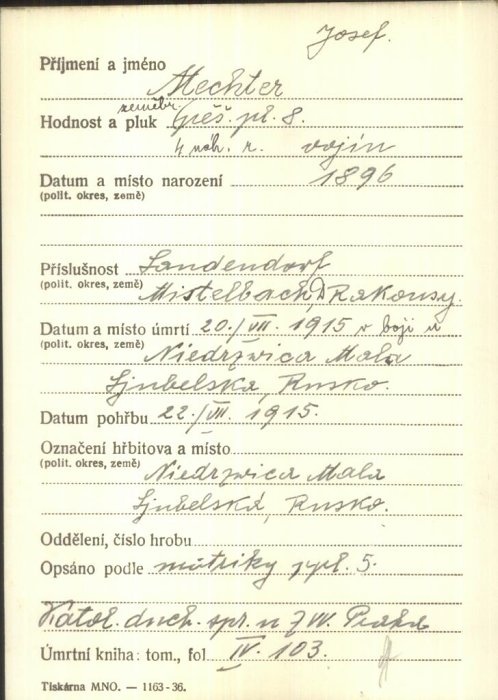 Josef.
Příjmení a jméno
Mechter
Hodnost a pluk zeměbr. pěš. pl. 8.
4 náh. r. vojín
Datum a místo narození 1896
(polit. okres, země)
Příslušnost Landendorf
(polit. okres, země) Mistelbach, D Rakousy.
Datum a místo úmrtí 20./VII. 1915 v boji u
(polit. okres, země) Niedrzwica Mala
Ljubelská, Rusko.
Datum pohřbu 22./VII. 1915.
Označení hřbitova a místo
(polit. okres, země) Niedrzwica Mala
Ljubelská, Rusko.
Oddělení, číslo hrobu
Opsáno podle matriky ppl. 5.
Katol. duch. spr. u ZVV. Praha
Úmrtní kniha: tom., fol IV. 103.
Tiskárna MNO. — 1163-36.